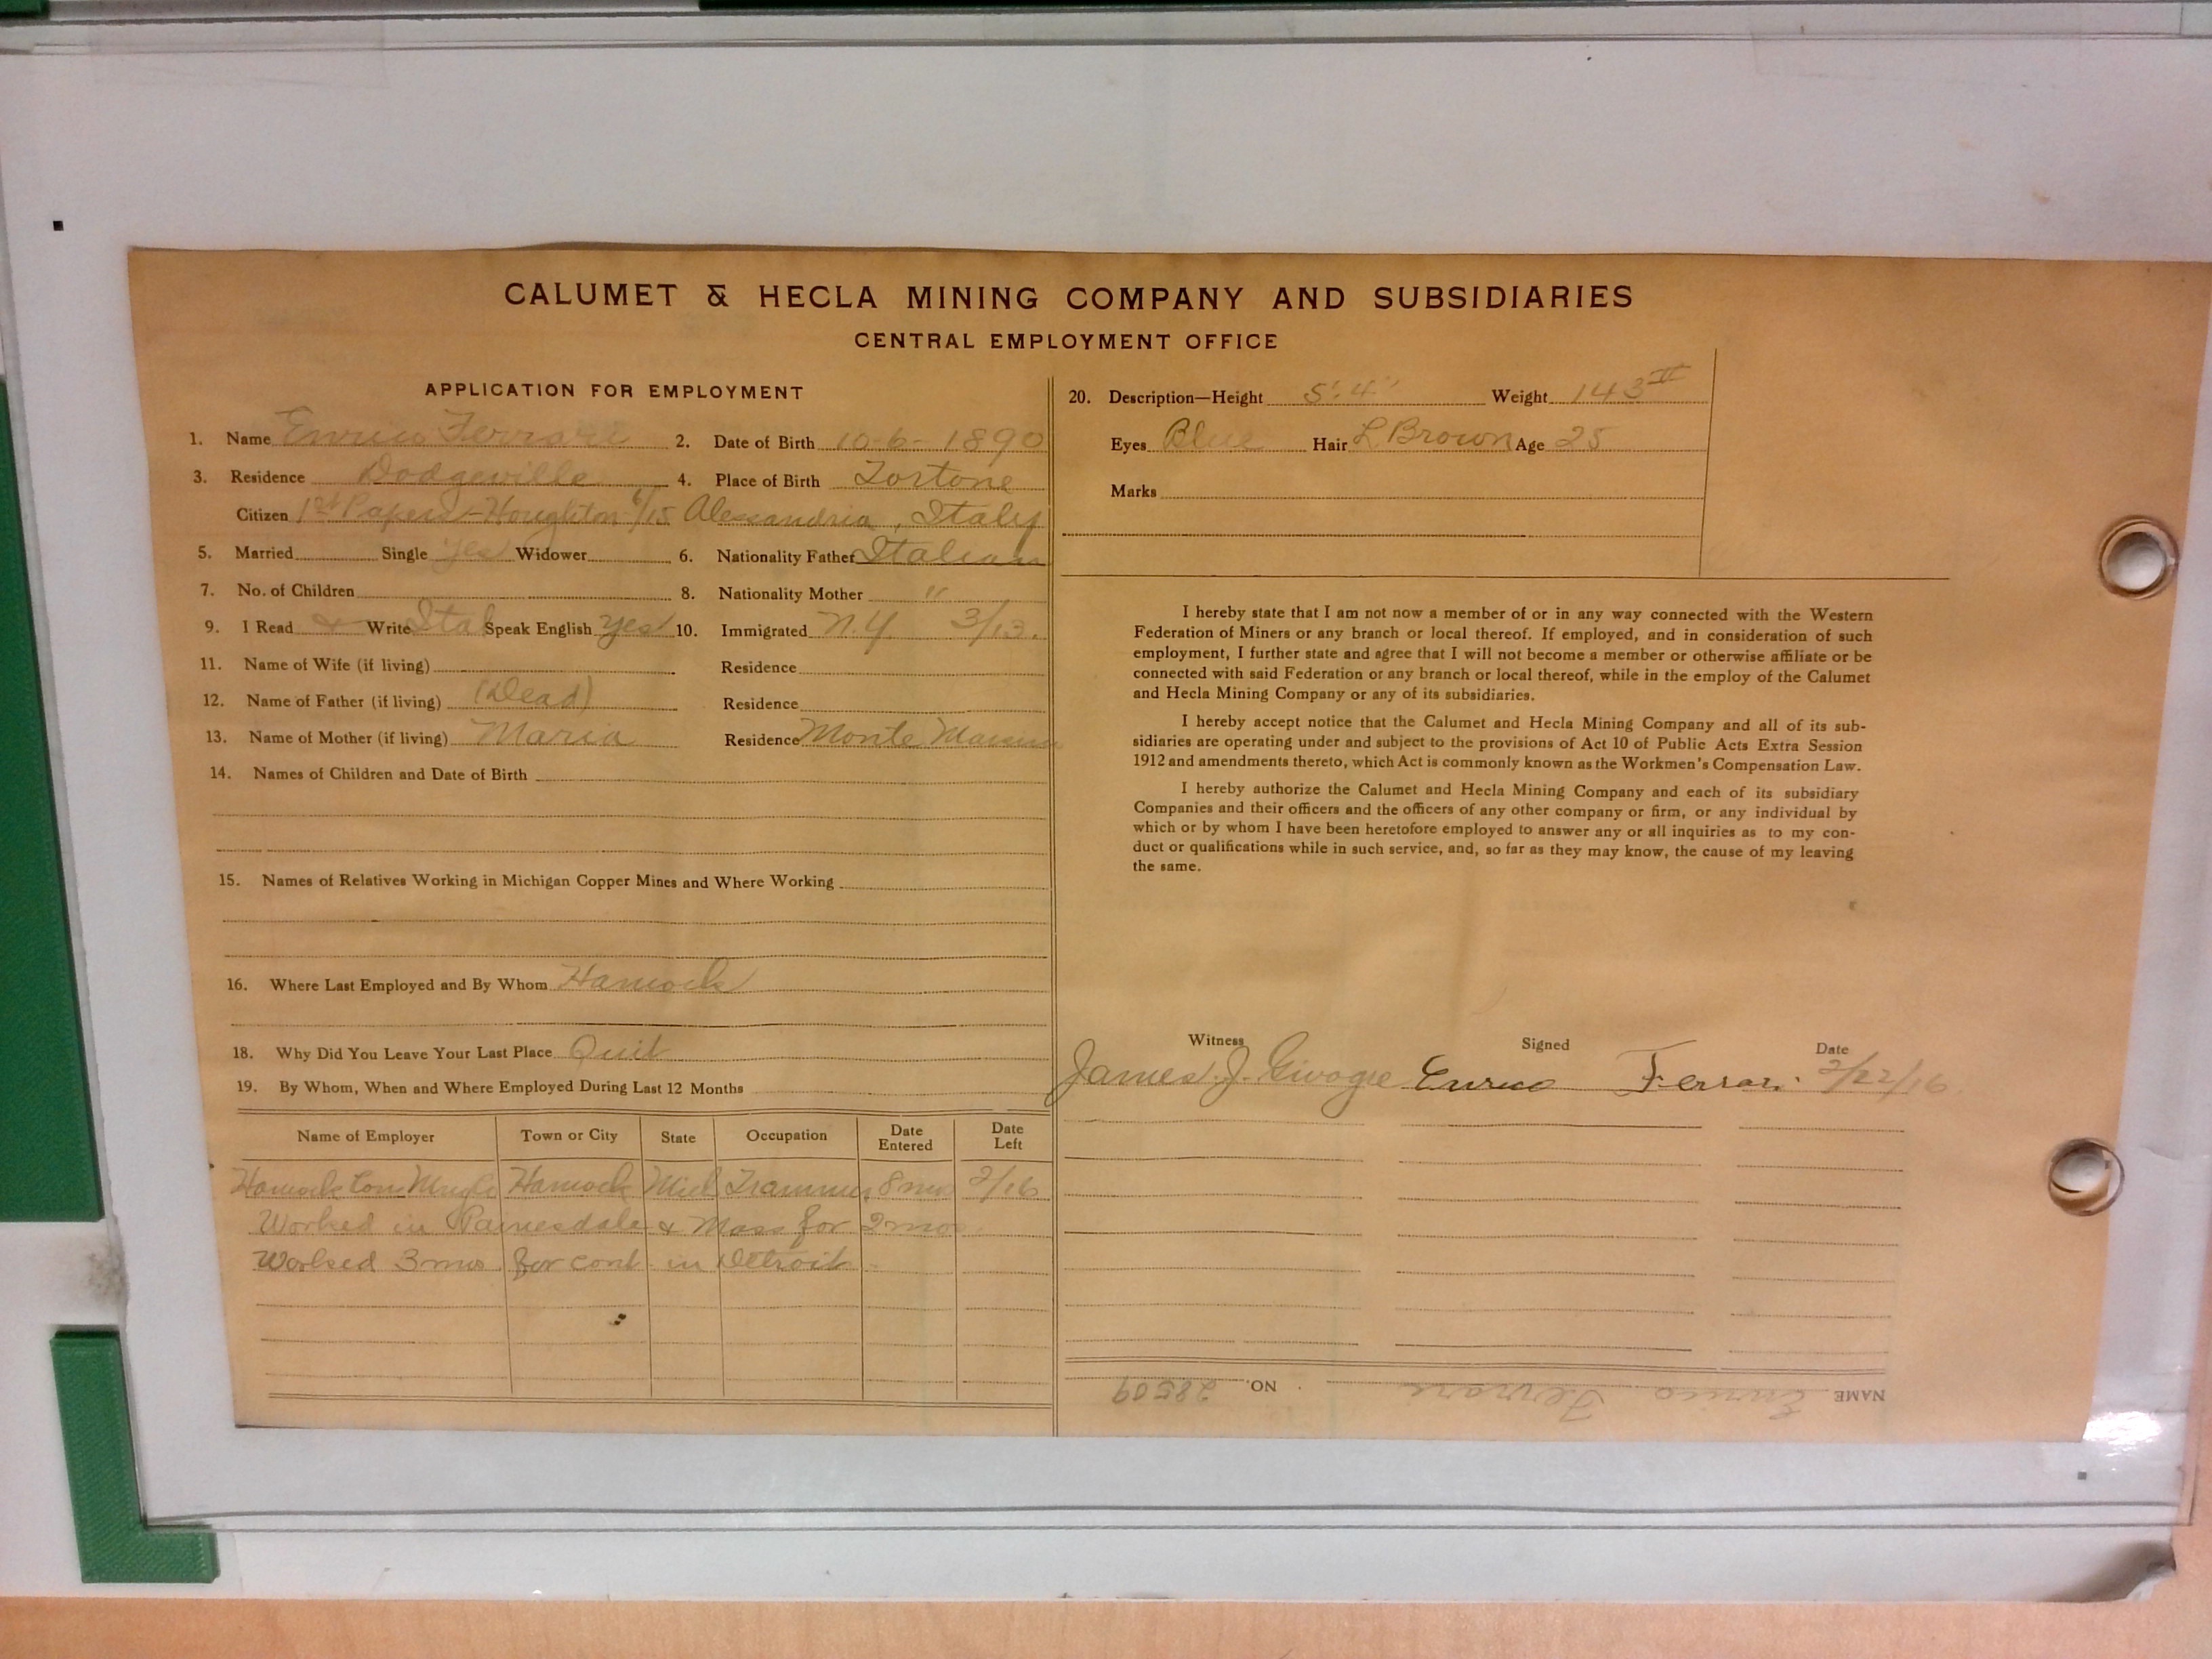 CALUMET & HECLA MINING COMPANY AND SUBSIDIARIES
CENTRAL EMPLOYMENT OFFICE
APPLICATION FOR EMPLOYMENT
1. Name Enrico Ferrari 2. Date of Birth 10-6-1890
3. Residence Dodgeville 4. Place of Birth Tortone
Citizen 1st Papers - Houghton 6/15 Alessandria, Italy
5. Married Single yes Widower 6. Nationality Father Italian
7. No. of Children 8. Nationality Mother "
9. I Read & Write Ital Speak English yes 10. Immigrated N.Y. 3/13.
11. Name of Wife (if living) Residence
12. Name of Father (if living) (Dead) Residence
13. Name of Mother (if living) Maria Residence Monte
14. Names of Children and Date of Birth
15. Names of Relatives Working in Michigan Copper Mines and Where Working
16. Where Last Employed and By Whom Hancock
18. Why Did You Leave Your Last Place Quit
19. By Whom, When and Where Employed During Last 12 Months
Name of Employer Town or City State Occupation Date Entered Date Left
Hancock Con Hancock Mich Trammer 8 mos 2/16
Worked in Painesdale & Mass for 2 mos.
Worked 3 mos for cont. in Detroit
20. Description—Height 5' 4" Weight 143
Eyes Blue Hair L Brown Age 25
Marks
I hereby state that I am not now a member of or in any way connected with the Western
Federation of Miners or any branch or local thereof. If employed, and in consideration of such
employment, I further state and agree that I will not become a member or otherwise affiliate or be
connected with said Federation or any branch or local thereof, while in the employ of the Calumet
and Hecla Mining Company or any of its subsidiaries.
I hereby accept notice that the Calumet and Hecla Mining Company and all of its sub-
sidiaries are operating under and subject to the provisions of Act 10 of Public Acts Extra Session
1912 and amendments thereto, which Act is commonly known as the Workmen's Compensation Law.
I hereby authorize the Calumet and Hecla Mining Company and each of its subsidiary
Companies and their officers and the officers of any other company or firm, or any individual by
which or by whom I have been heretofore employed to answer any or all inquiries as to my con-
duct or qualifications while in such service, and, so far as they may know, the cause of my leaving
the same.
Witness Signed Date
James J. Enrico Ferrari 2/22/16
NAME Enrico Ferrare NO. 28509